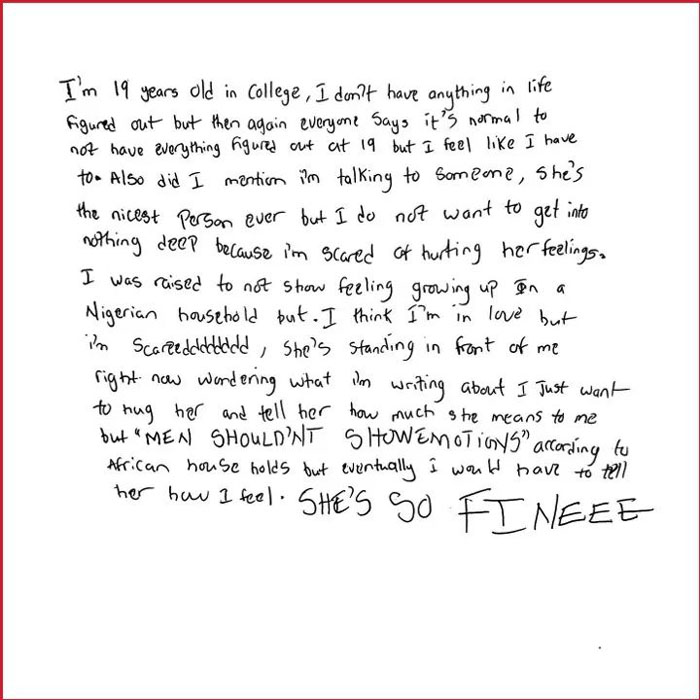 I'm 19 years old in college, I don't have anything in life
figured out but then again everyone says it's normal to
not have everything figured out at 19 but I feel like I have
to. Also did I mention i'm talking to someone, she's
the nicest person ever but I do not want to get into
nothing deep because i'm scared of hurting her feelings.
I was raised to not show feeling growing up In a
Nigerian household but. I think I'm in love but
i'm Scareedddddddd, she's standing in front of me
right now wondering what i'm writing about I Just want
to hug her and tell her how much she means to me
but "MEN SHOULD'NT SHOW EMOTIONS" according to
African house holds but eventually i would have to tell
her how I feel. SHE'S SO FINEEE